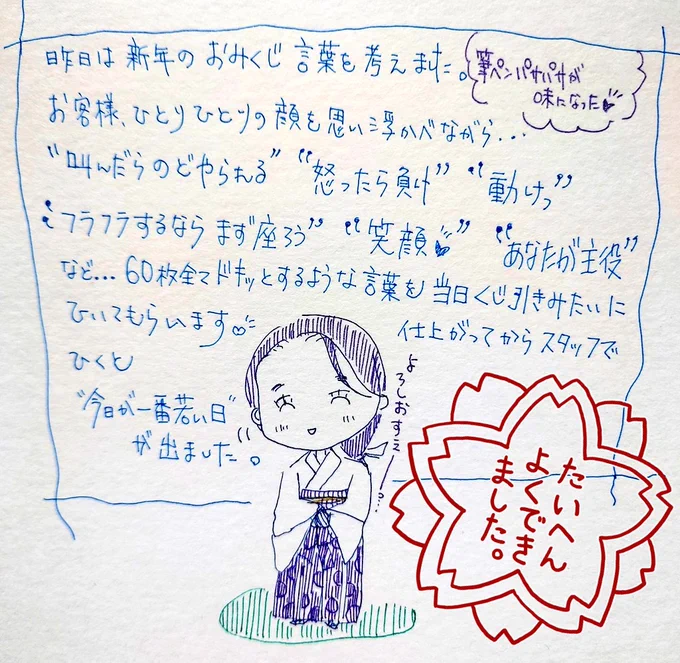 昨日は新年のおみくじ言葉を考えました。
筆ペンパサパサが
味になった
お客様、ひとりひとりの顔を思い浮かべながら...
“叫んだらのどやられる” “怒ったら負け” “動けっ”
“フラフラするなら まず座ろう” “笑顔” “あなたが主役”
など...60枚全てドキッとするような言葉を当日くじ引きみたいに
ひいてもらいます
仕上がってからスタッフで
ひくと
“今日が一番若い日”
が出ました。
よろしおすえ〜...
たいへん
よくでき
ました。